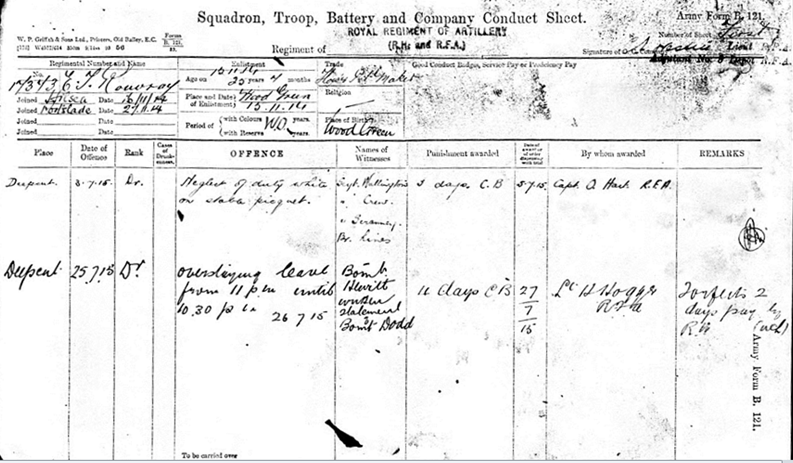 Squadron, Troop, Battery and Company Conduct Sheet.
Army Form B. 121.
W. P. Griffith & Sons Ld., Printers, Old Bailey, E.C.
Forms B. 121.
ROYAL REGIMENT OF ARTILLERY
(R.H. and R.F.A.)
Number of Sheet First
Regiment of
Signature of O. C.
Regimental Number and Name
Enlistment
Trade
Good Conduct Badges, Service Pay or Proficiency Pay
No.
15.11.14
Age on 25 years 4 months
Maker
Religion
Joined Date 16/11/14
Place and Date of Enlistment Wood Green
Joined Portslade Date 27.11.14
15.11.14
Joined Date
Period of with Colours W.O. years.
with Reserve years.
Place of Birth
Wood Green
Joined Date
Place
Date of Offence
Rank
Cases of Drunkenness
OFFENCE
Names of Witnesses
Punishment awarded
Date of award or of order dispensing with trial
By whom awarded
REMARKS
Deepcut 3-7-15 Dr. Neglect of duty while Sergt. 3 days C.B 5.7.15 Capt. O Hart R.F.A.
on stable picquet.
Br. Lines
Deepcut 25 7 15 Dr overstaying leave Bomb.
from 11 p m until Hewitt 11 days CB 27 Lt H Hogger Forfeits 2
10.30 p m 26 7 15 written statement 7 R F A days pay by
Bombt Dodd 15 R.W
To be carried over
Army Form B. 121.